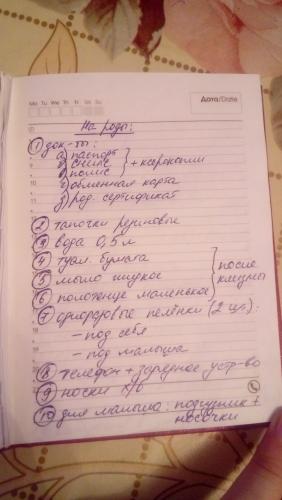 Mo Tu We Th Fr Sa Su
Дата/Date
На роды:
① док-ты:
а) паспорт
б) снилс
в) полис
} + ксерокопии
г) обменная карта
д) род. сертификат
② тапочки резиновые
③ вода 0,5 л
④ туал. бумага
⑤ мыло жидкое
⑥ полотенце маленькое
} после клизмы
⑦ одноразовые пелёнки (2 шт.):
- под себя
- под малыша
⑧ телефон + зарядное устр-во
⑨ носки х/б
⑩ для малыша: подгузник +
носочки